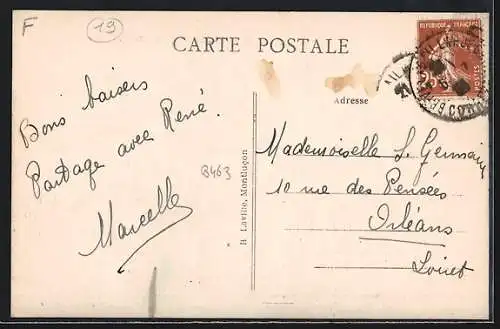 F
19
CARTE POSTALE
Adresse
RÉPUBLIQUE FRANÇAISE
Bons baisers
Partage avec René.
Marcelle
B463
H. Laville, Montluçon
Mademoiselle S. Germain
10 rue des Pensées
Orléans
Loiret